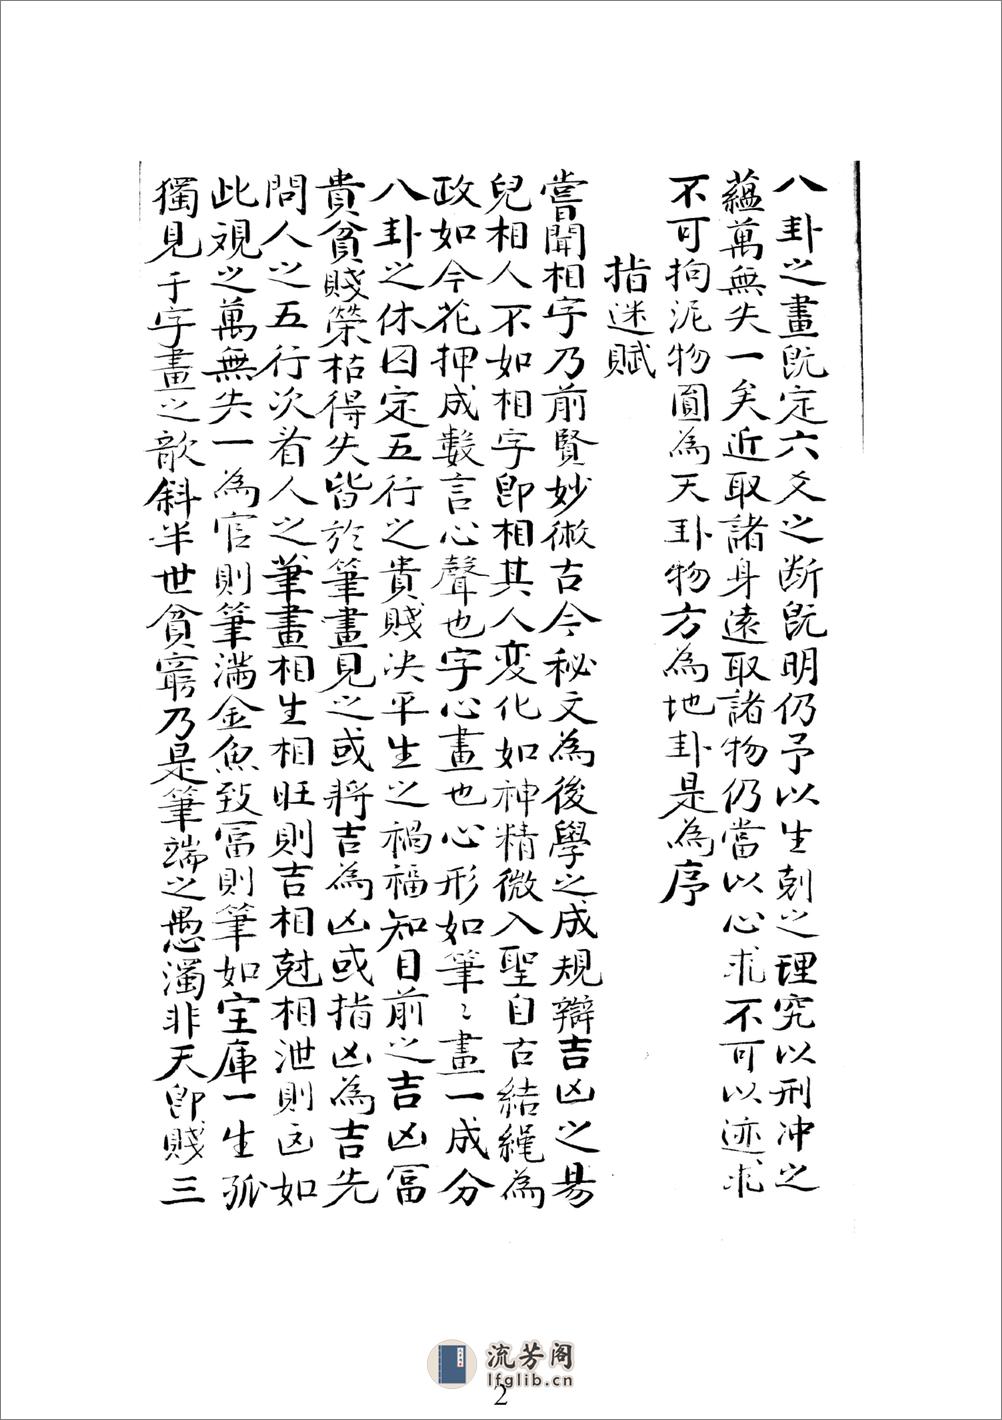 八卦之畫既定六爻之断既明仍予以生剋之理究以刑冲之
蘊萬無失一矣近取諸身遠取諸物仍當以心求不可以迹求
不可拘泥物圓為天卦物方為地卦是為序
指迷賦
嘗聞相字乃前賢妙術古今秘文為後學之成規辯吉凶之易
兒相人不如相字卽相其人变化如神精微入聖自古結繩為
政如今花押成數言心聲也字心畫也心形如筆〻畫一成分
八卦之休囚定五行之貴賤决平生之禍福知目前之吉凶冨
貴貧賤榮枯得失皆於筆畫見之或將吉為凶或指凶為吉先
問人之五行次看人之筆畫相生相旺則吉相尅相泄則凶如
此覌之萬無失一為官則筆滿金魚致冨則筆如宝庫一生孤
獨見于字畫之歆斜半世貧窮乃是筆端之愚濁非天卽賤三
流芳阁
lfglib.cn
2